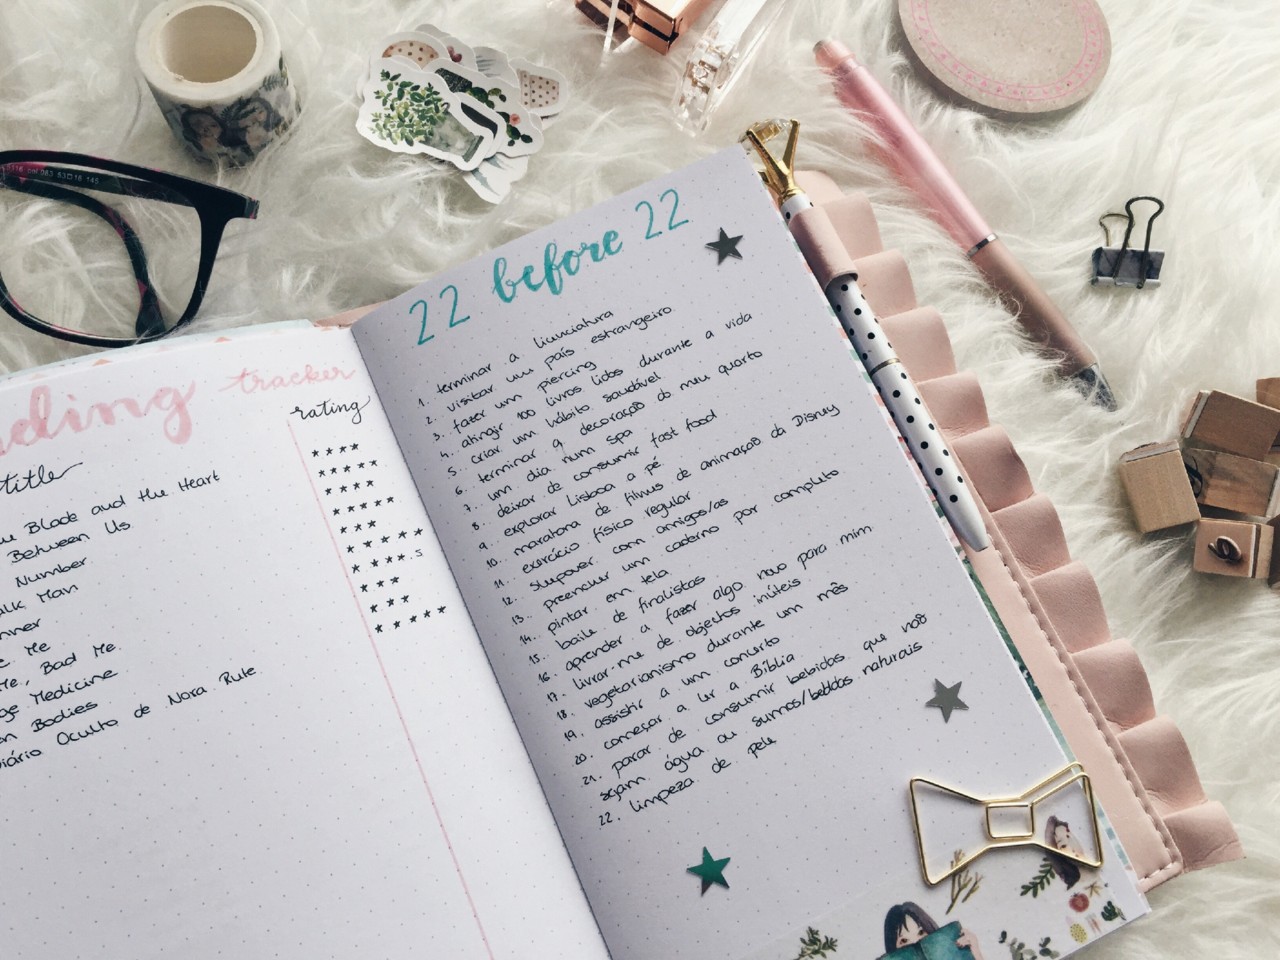 ding tracker
title
rating
Blade and the Heart
Between Us
Number
alk Man
nner
e Me
Me, Bad Me.
ge Medicine
n Bodies
iário Oculto de Nora Rute
22 before 22
1. terminar a licenciatura
2. visitar um país estrangeiro
3. fazer um piercing
4. atingir 100 livros lidos durante a vida
5. criar um hábito saudável
6. terminar a decoração do meu quarto
7. um dia num spa
8. deixar de consumir fast food
9. explorar Lisboa a pé
10. maratona de filmes de animação da Disney
11. exercício físico regular
12. sleepover com amigos/as
13. preencher um caderno por completo
14. pintar em tela
15. baile de finalistas
16. aprender a fazer algo novo para mim
17. livrar-me de objectos inúteis
18. vegetarianismo durante um mês
19. assistir a um concerto
20. começar a ler a Bíblia
21. parar de consumir bebidas que não
sejam água ou sumos/bebidas naturais
22. limpeza de pele